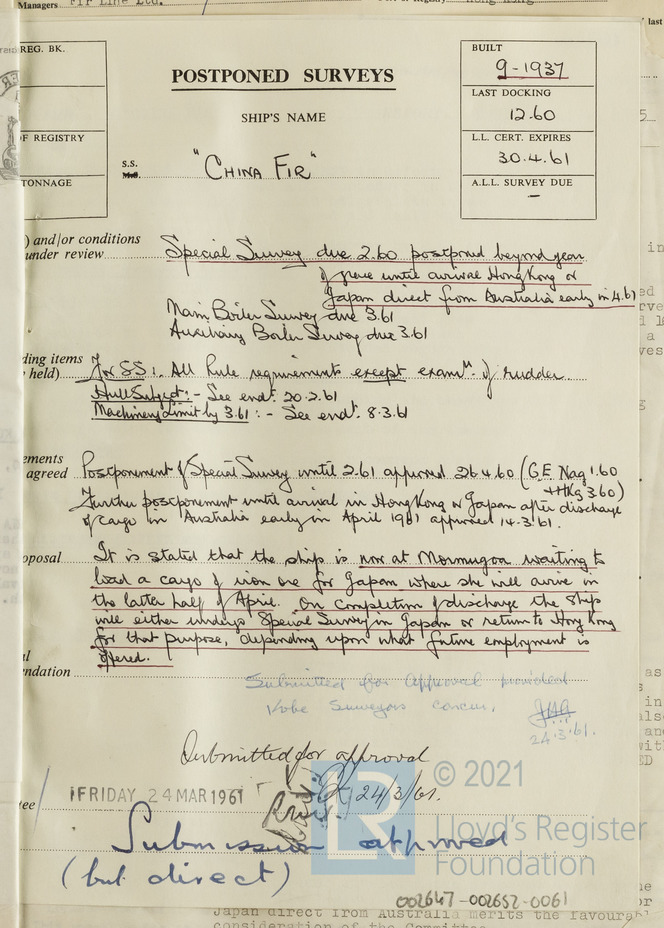 Managers Fir Line Ltd.
REG. BK.
POSTPONED SURVEYS
SHIP'S NAME
BUILT
9-1937
LAST DOCKING
12.60
OF REGISTRY
L.L. CERT. EXPIRES
30.4.61
S.S.
"CHINA FIR"
TONNAGE
A.L.L. SURVEY DUE
–
) and/or conditions
under review
Special Survey due 2.60 postponed beyond year
of grace until arrival Hong Kong or
Japan direct from Australia early in 4.61
Main Boiler Survey due 3.61
Auxiliary Boiler Survey due 3.61
ding items
held)
For SS:. All Rule requirements except examn. of rudder.
Hull Subject:- See endt. 20.2.61
Machinery limit by 3.61:- See endt. 8.3.61
ements
agreed
Postponement of Special Survey until 2.61 approved 26.4.60 (G.E. Nag 1.60
+ HKg 3.60)
Further postponement until arrival in Hong Kong or Japan after discharge
of cargo in Australia early in April 1961 approved 14.3.61.
oposal
It is stated that the ship is now at Mormugoa waiting to
load a cargo of iron ore for Japan where she will arrive in
the latter half of April. On completion of discharge the ship
will either undergo Special Survey in Japan or return to Hong Kong
for that purpose, depending upon what future employment is
offered.
ndation
Submitted for Approval provided
Kobe Surveyors concur.
24.3.61.
Submitted for approval
24/3/61.
tee
FRIDAY 24 MAR 1961
Submission approved
(but direct)
© 2021
LR
Lloyd's Register
Foundation
002647-002652-0061
Japan direct from Australia merits the favourabl
consideration of the Committee